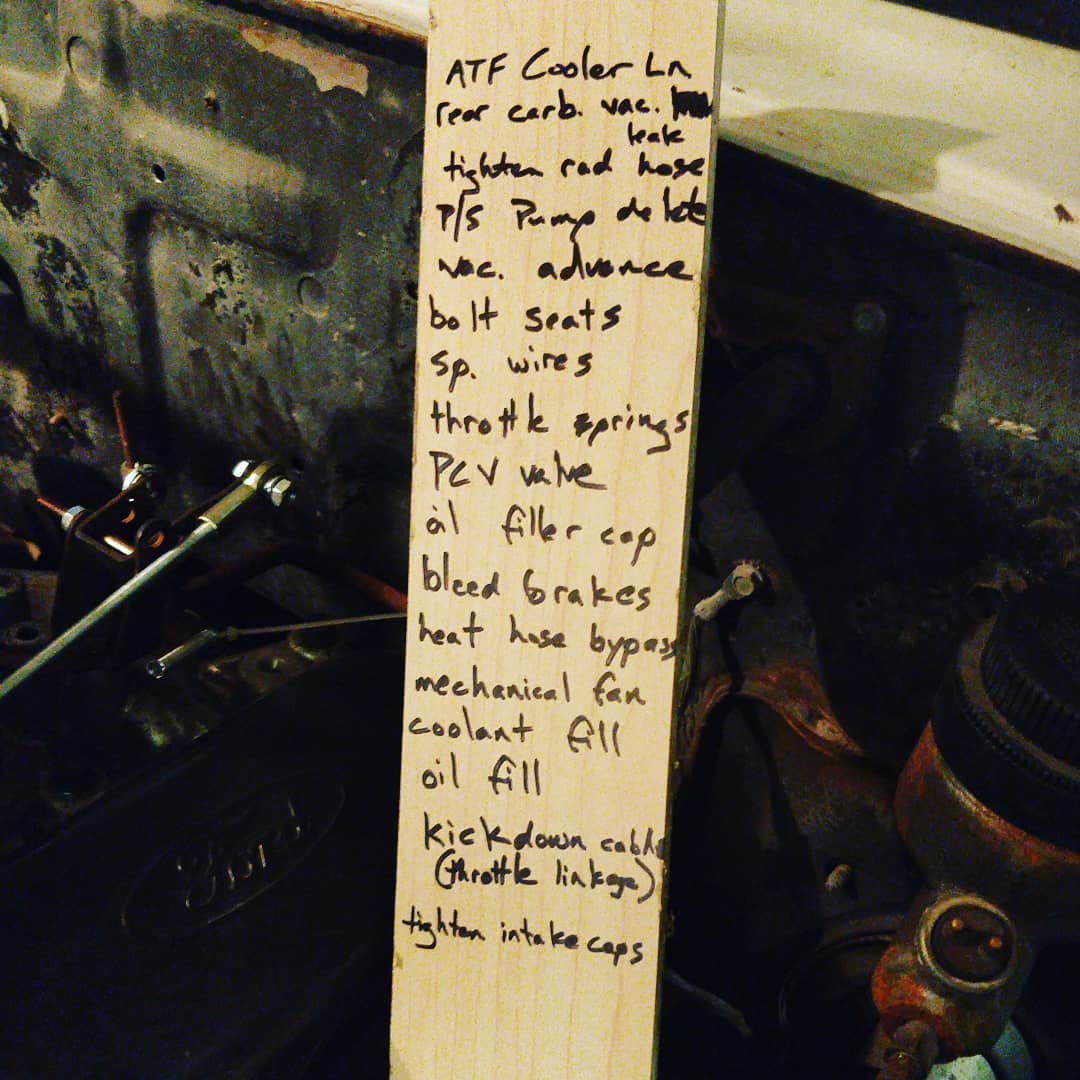 ATF Cooler Ln
rear carb. vac.
leak
tighten rad hose
P/S Pump delete
vac. advance
bolt seats
sp. wires
throttle springs
PCV valve
oil filler cap
bleed brakes
heat hose bypass
mechanical fan
coolant fill
oil fill
kickdown cable
(throttle linkage)
tighten intake caps
Ford